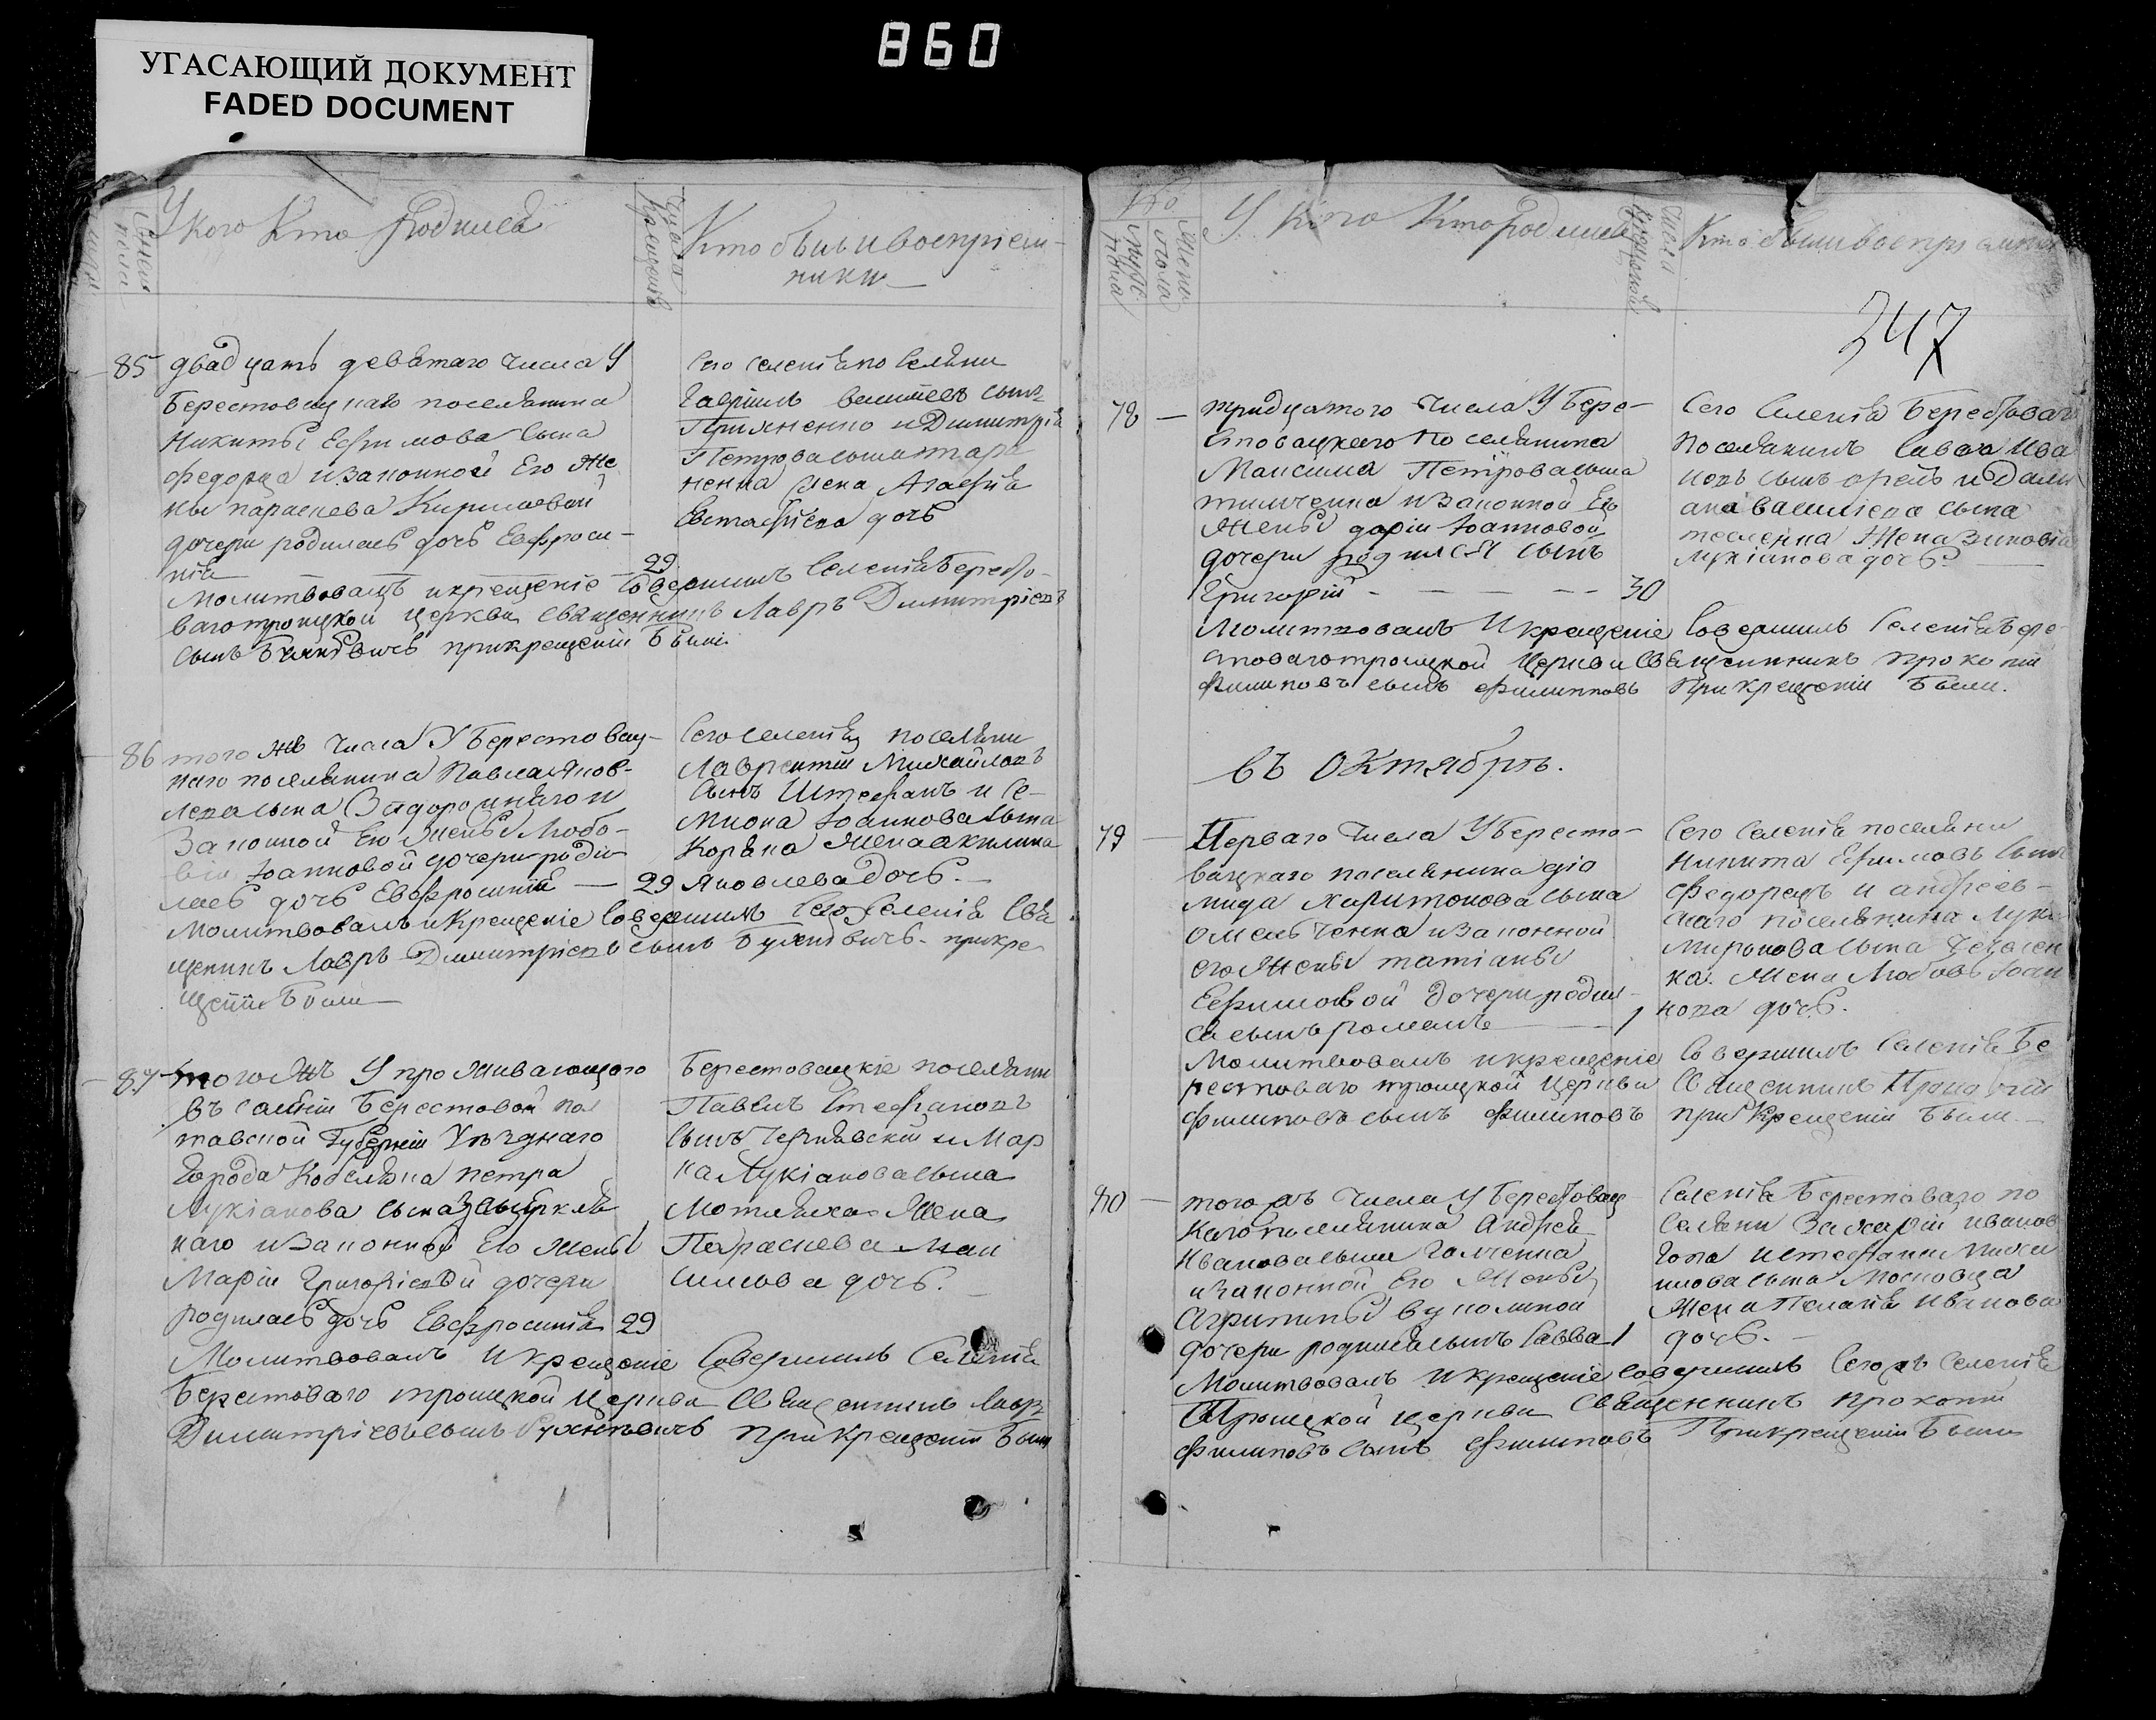 860
УГАСАЮЩИЙ ДОКУМЕНТ
FADED DOCUMENT
У кого Кто Родился
Число крещенія
Кто были воспріем-
ники
85 двадцать девятаго числа У
Берестовецкаго поселянина
Никиты Ефимова сына
Федорца и законной Его Же
ны Параскева Кириловой
дочери родилась дочь Евфроси-
нія 29
Сего селенія поселяни
Гавріилъ сынъ
и Димитрія
Петрова сына
ненка жена Агафія
Евстафіева дочь
Молитвовалъ и крещеніе Совершилъ Селенія Бересто-
ваго троицкой церкви священникъ Лавръ Димитріевъ
сынъ прикрещеніи Были
86 того же числа У Берестовец-
каго поселянина Павла Яков-
лева сына Задорожняго и
Законной Его Жены Любо-
віи Іоанновой дочери роди-
лась дочь Евфросинія — 29
Сего селенія поселяни
Лаврентій Михайловъ
сынъ Штефанъ и Се-
миона Іоаннова сына
Коряка Жена акилина
Яковлева дочь.
Молитвовалъ и Крещеніе Совершилъ Сего Селенія Свя
щеникъ Лавръ Димитріевъ сынъ прикре
щеніи Были
87 того жъ У проживающаго
въ селеніи Берестовой Пол
тавской Губерніи Уезднаго
Города Кобеляка петра
Лукіанова сына
наго и Законной Его жены
Маріи Григоріевой дочери
родилась дочь Евфросинія 29
Берестовецкіе поселяни
Павелъ Стефановъ
сынъ Чернявскій и Мар
ка Лукіанова сына
Жена
Параскева Мак
симова дочь.
Молитвовалъ и крещеніе Совершилъ Селенія
Берестоваго троицкой Церкви Священникъ Лавръ
Димитріевъ сынъ прикрещеніи Были
У кого Кто родился
Число крещеній
Кто были воспріемники
247
78 — тридцатого числа У Бере-
стовецкаго Поселянина
Максима Петрова сына
тимченка и Законной Его
Жены даріи Іоанновой
дочери родился сынъ
Григорій - - - - - 30
Сего Селенія Берестоваго
Поселянинъ Савва Ива
новъ сынъ орелъ и Дами
ана Василіева сына
Жена Зиновія
Лукіанова дочь.
Молитвовалъ И крещеніе Совершилъ Селенія Бере-
стоваго троицкой Церкви Священникъ Прокопій
Филиповъ сынъ Филиповъ При крещеніи Были.
въ Октябрѣ.
79 — Перваго Числа У Бересто-
вецкаго поселянина діо
мида Харитонова сына
Омельченка и Законной
его Жены татіаны
Ефимовой дочери родил-
ся сынъ романъ — 1
Сего Селенія поселяни
Никита Ефимовъ сынъ
Федорецъ и андреев-
скаго поселянина Луки
Миронова сына
ка Жена Любовь Іоан
нова дочь.
Молитвовалъ и крещеніе Совершилъ Селенія Бе
рестоваго троицкой Церкви Священникъ Прокопій
Филиповъ сынъ Филиповъ при Крещеніи Были
80 — того жъ Числа У Берестовец
каго поселянина Андрея
Иванова сына Галченка
и Законной Его Жены
Агрипины Вукаловой
дочери родился сынъ Савва 1
Селенія Берестоваго по
селяни Захарій Иванов
Гопа и стефана Михаи
лова сына Московца
Жена Пелагія Иванова
дочь.
Молитвовалъ И крещеніе Совершилъ Сего жъ Селенія
Троицкой церкви Священникъ Прокопій
Филиповъ сынъ Филиповъ Прикрещеніи Были